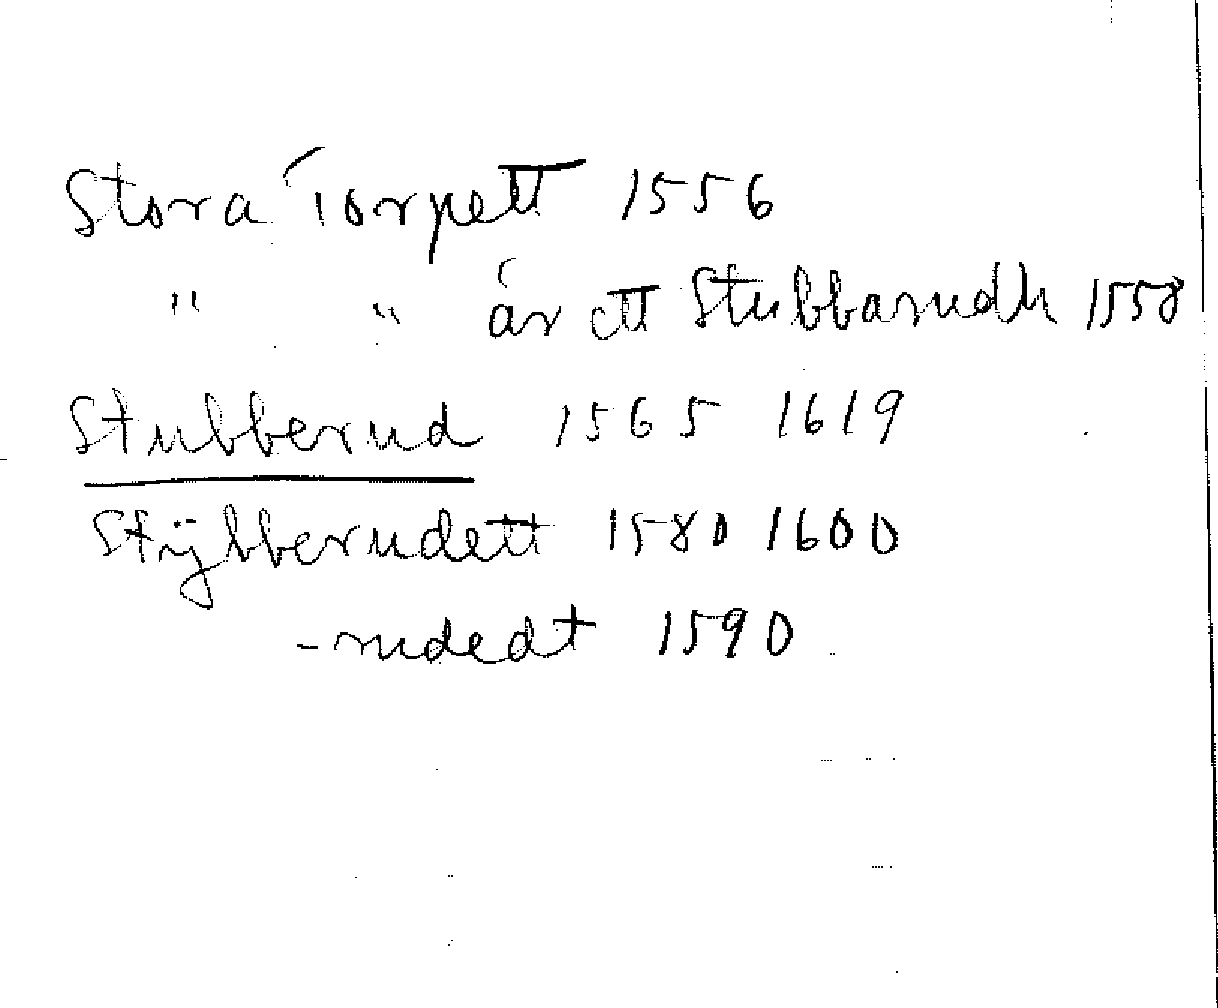 Stora Torpett 1556
" " är ett Stubbarudh 1558
Stubberud 1565 1619
Stÿbberudett 1580 1600
-rudedt 1590